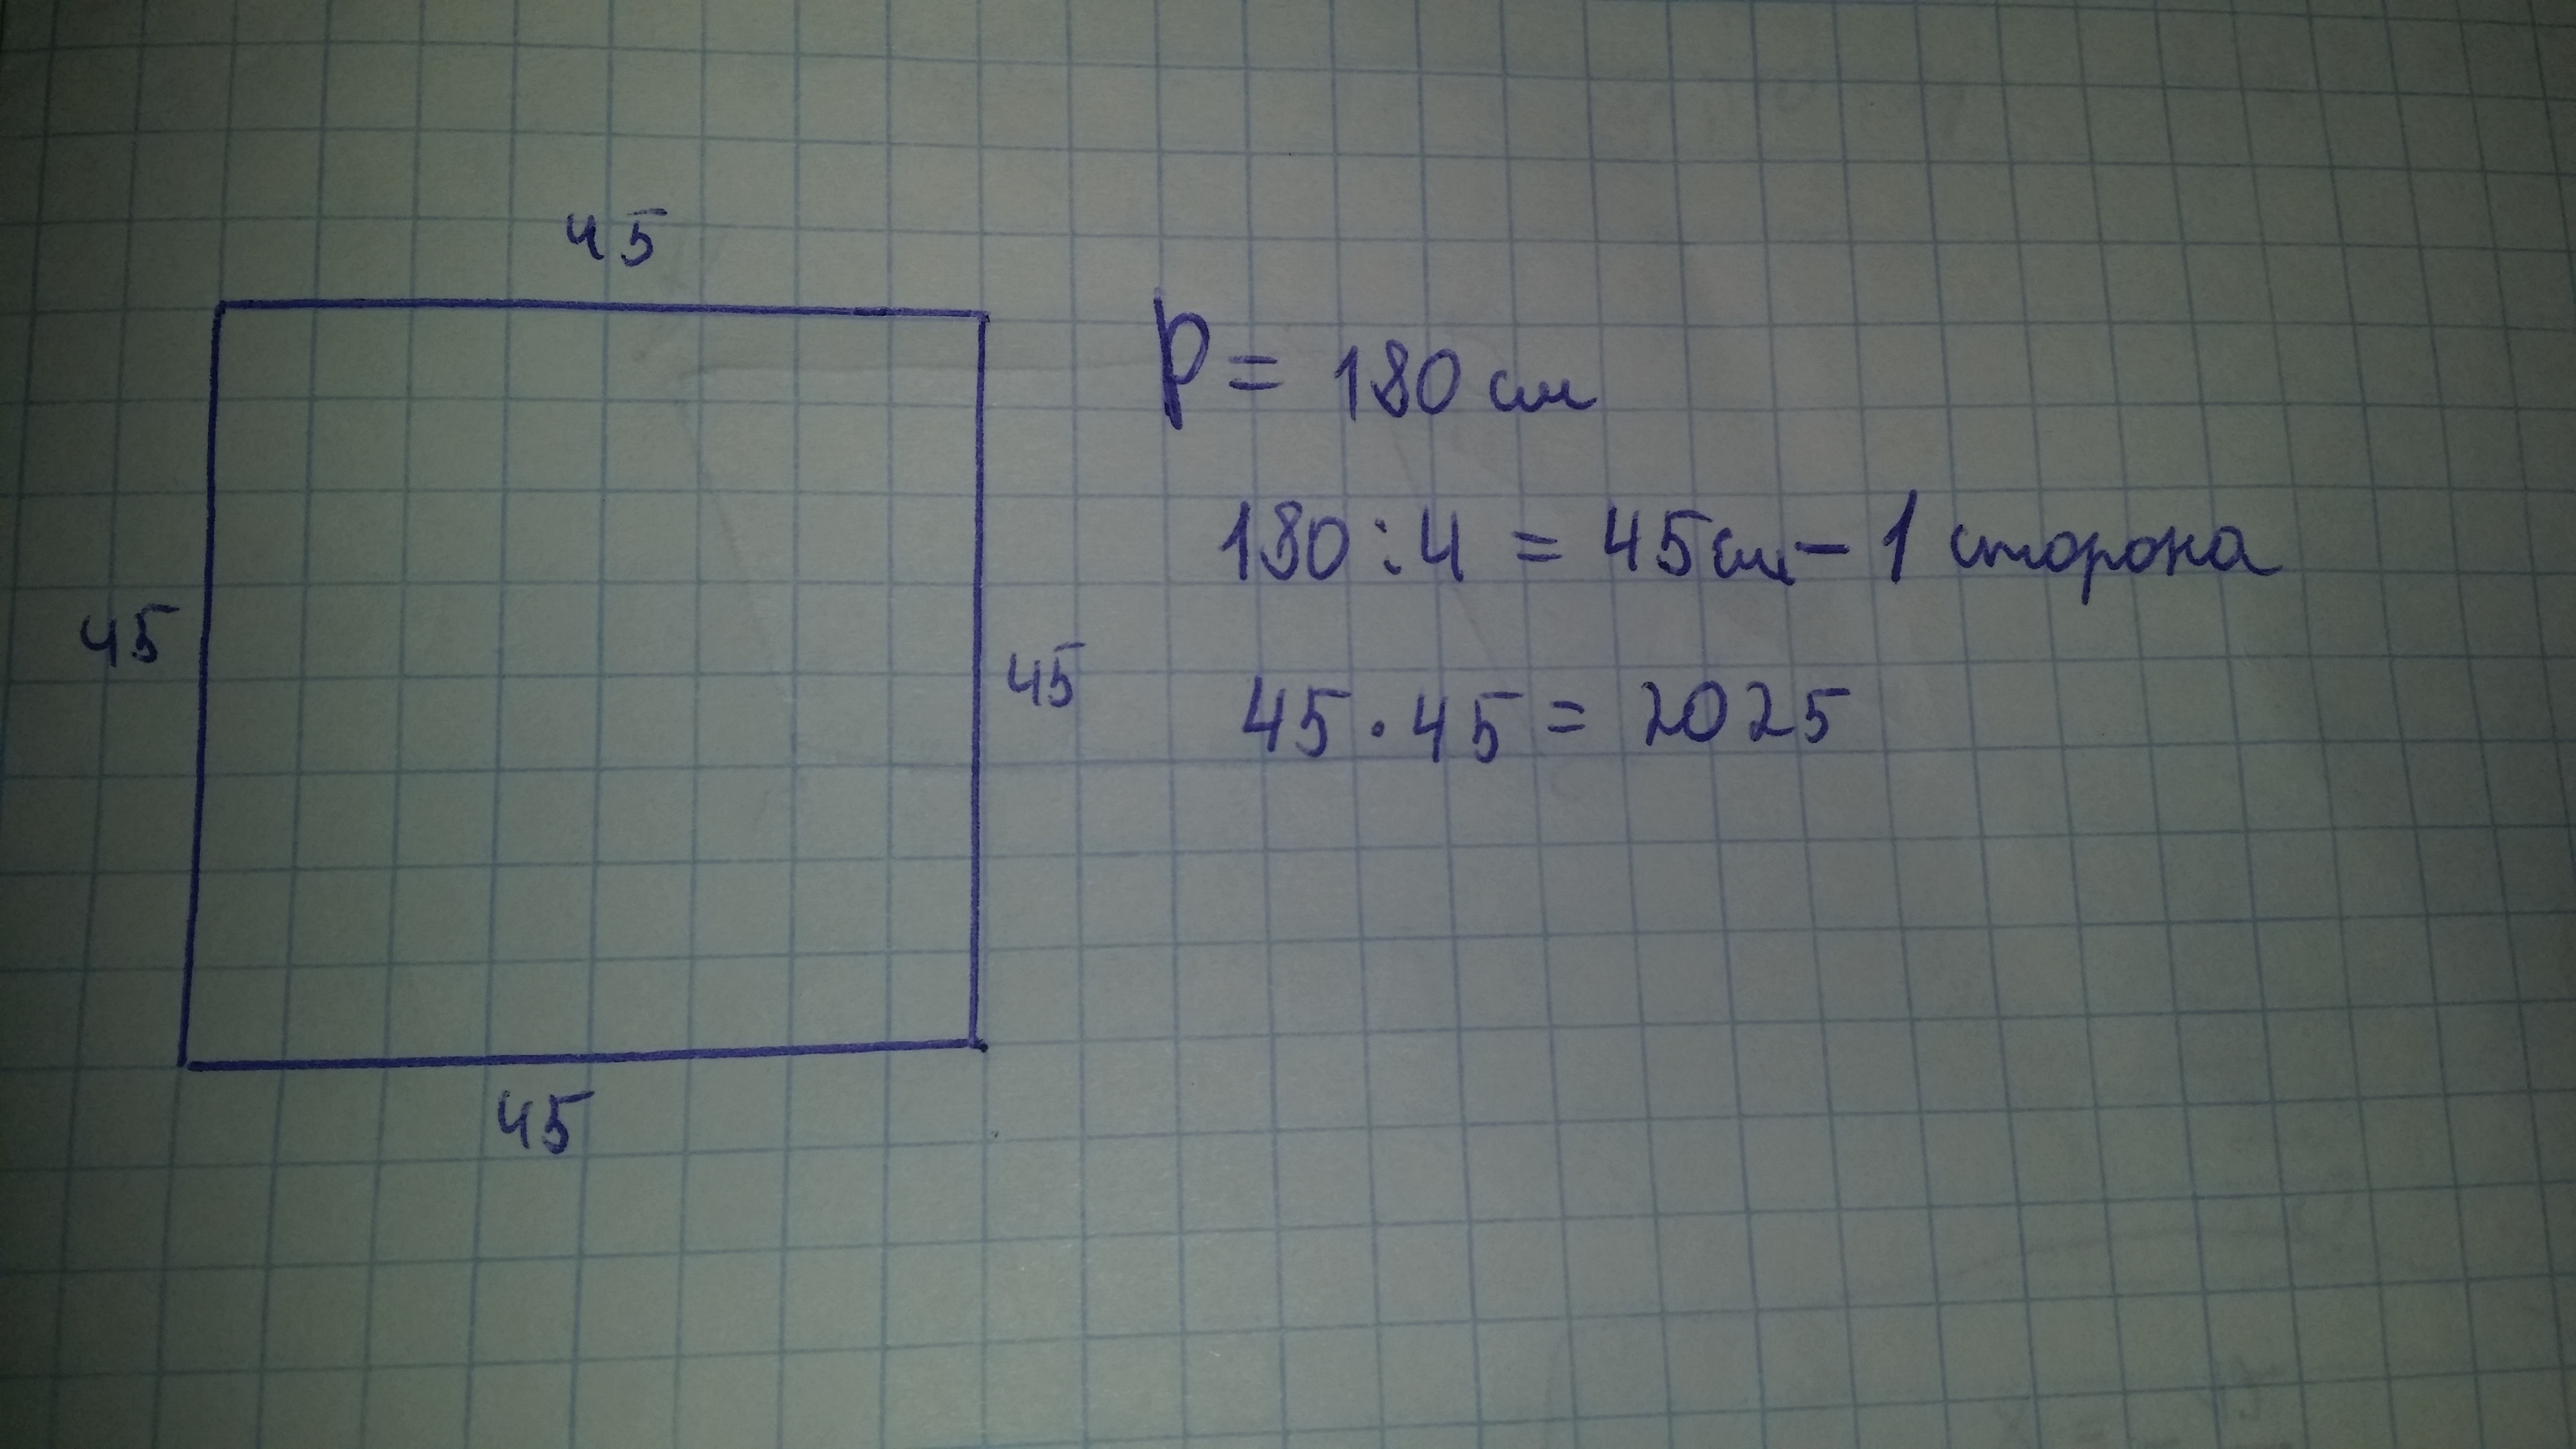 45
P = 180 см
180 : 4 = 45 см – 1 сторона
45
45
45 · 45 = 2025
45